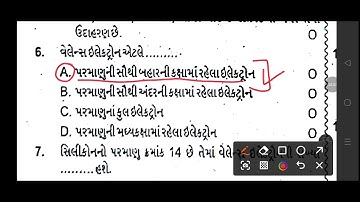 ઉદાહરણ છે. O
6. વેલેન્સ ઇલેક્ટ્રોન એટલે .........
A. પરમાણુની સૌથી બહારની કક્ષામાં રહેલા ઇલેક્ટ્રોન
B. પરમાણુની સૌથી અંદરની કક્ષામાં રહેલા ઇલેક્ટ્રોન O
C. પરમાણુનાં કુલ ઇલેક્ટ્રોન O
D. પરમાણુની મધ્યકક્ષામાં રહેલા ઇલેક્ટ્રોન O
7. સિલીકોનનો પરમાણુ ક્રમાંક 14 છે તેમાં વેલેન્સ
......... હશે.